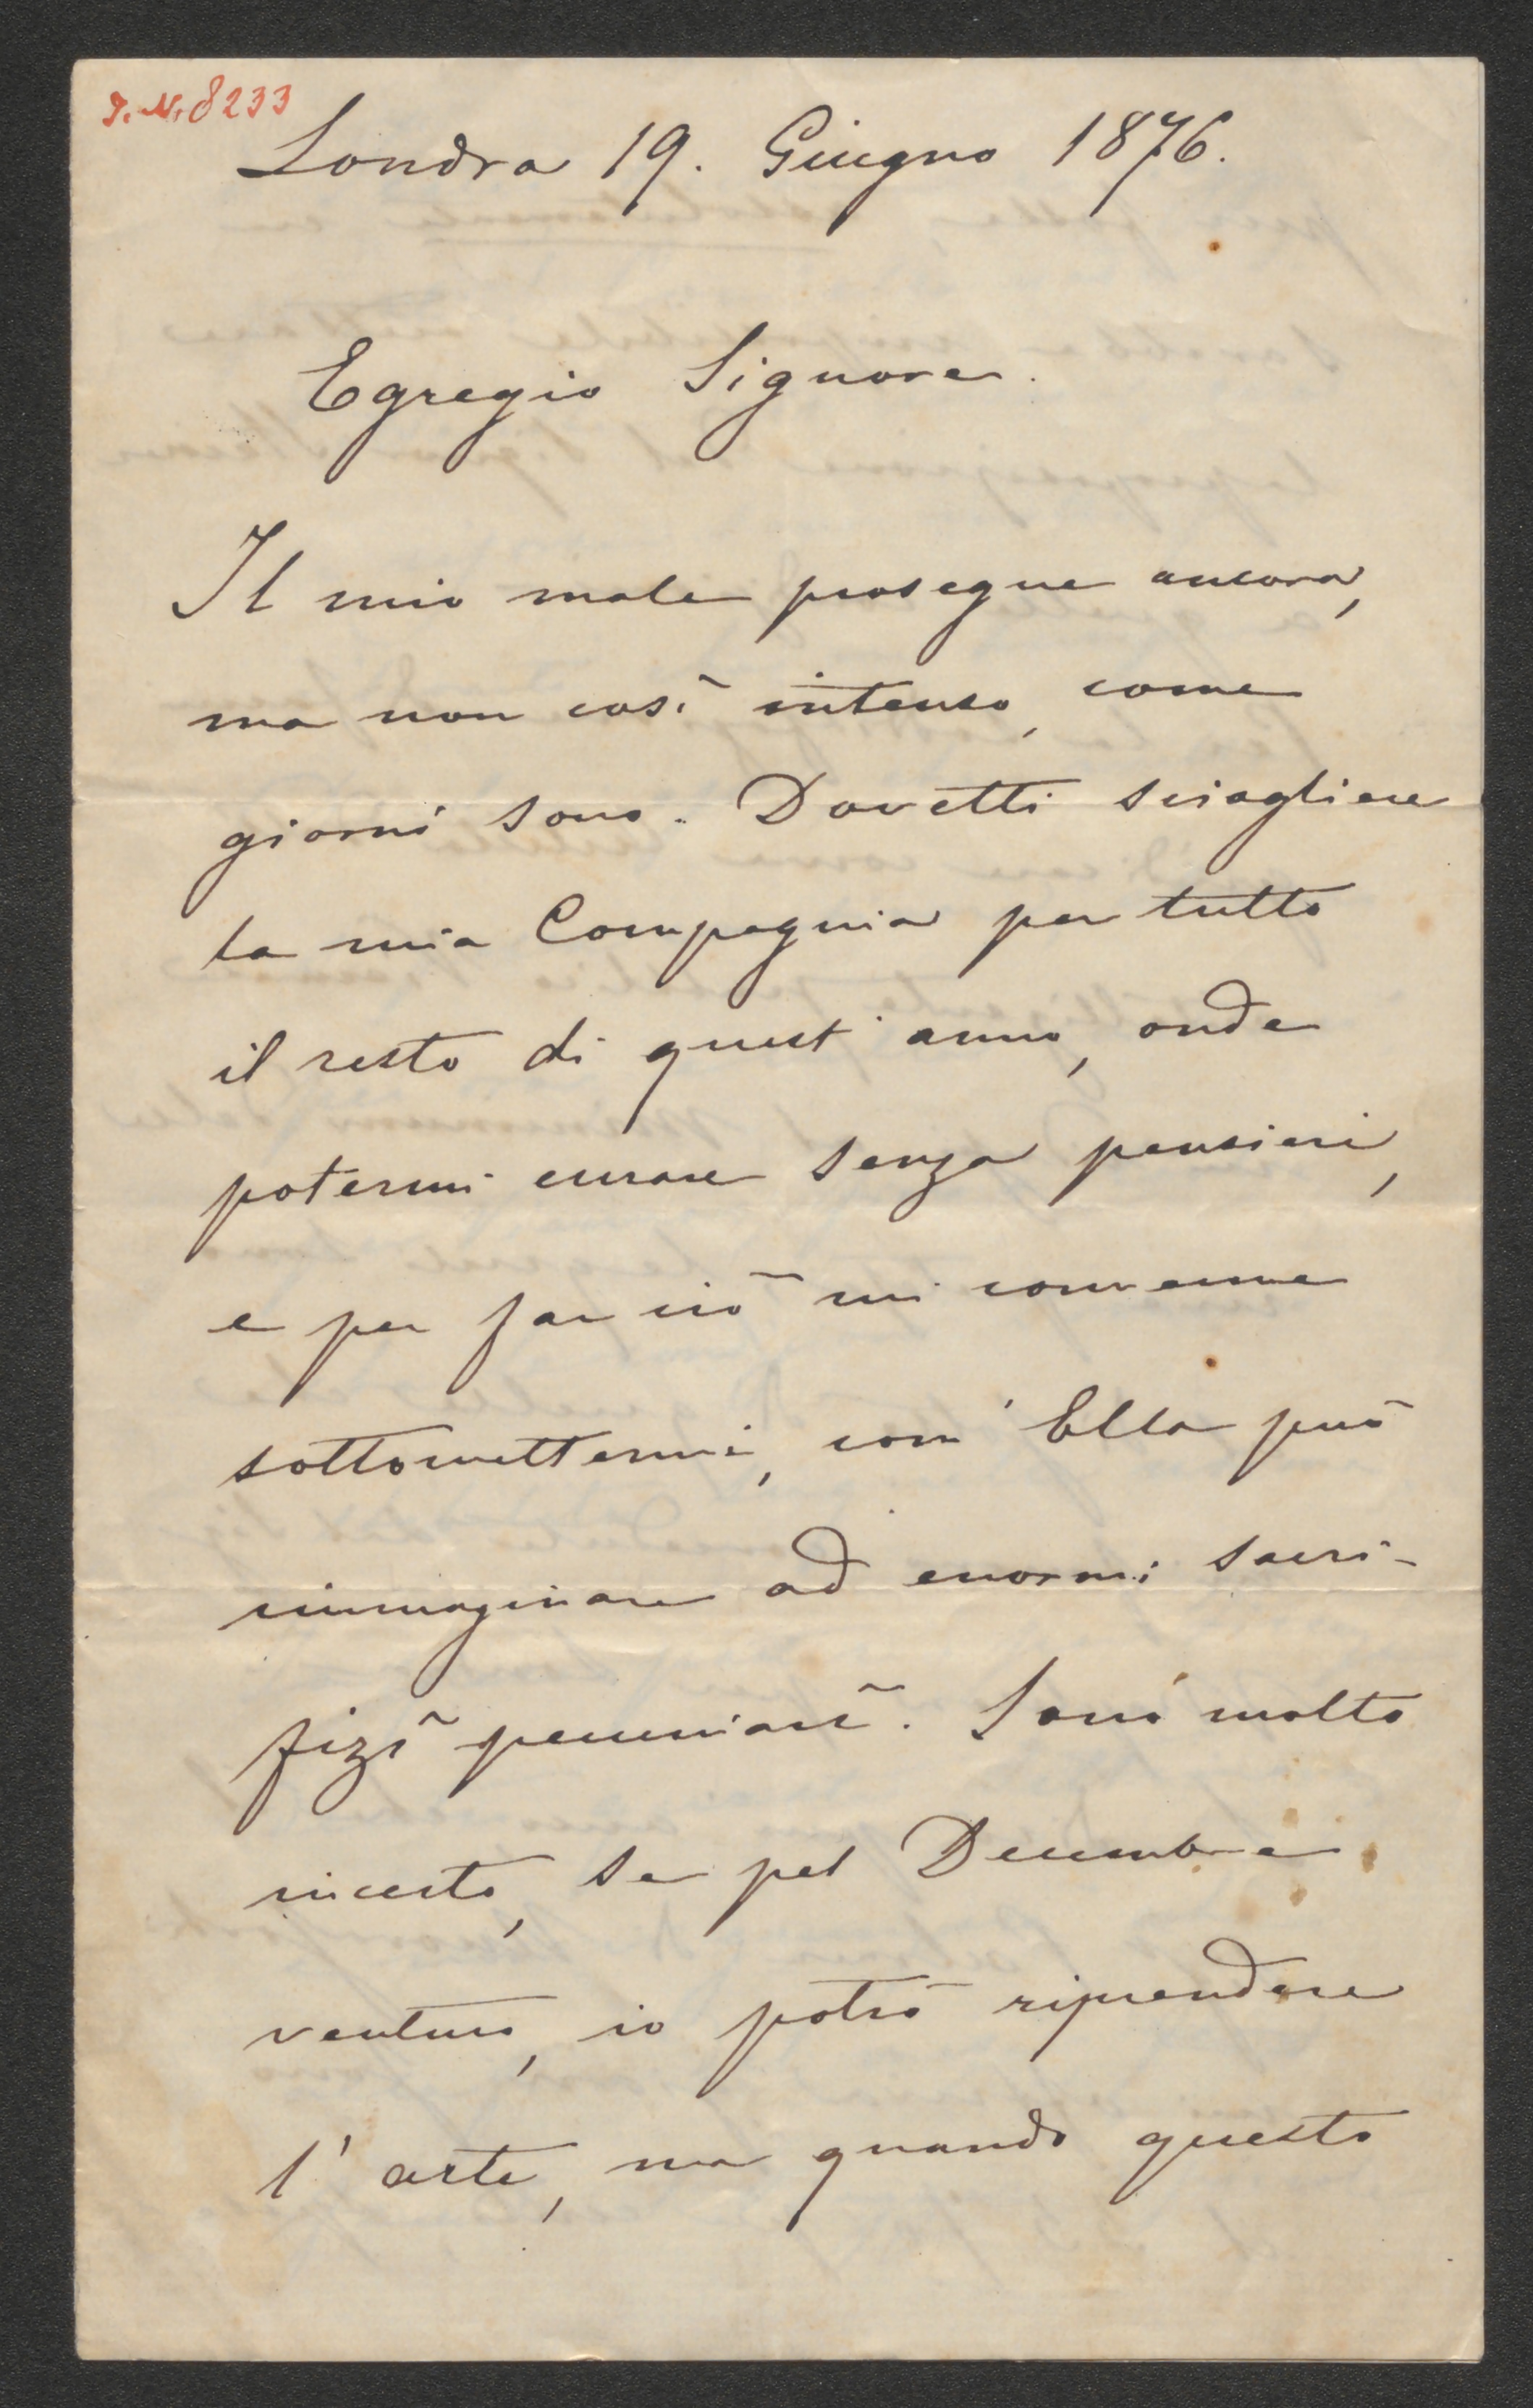 J. N. 8233
Londra 19. Giugno 1876.
Egregio Signore.
Il mio male prosegue ancora,
ma non così intenso, come
giorni sono. Dovetti sciogliere
la mia Compagnia per tutto
il resto di quest'anno, onde
potermi curare senza pensieri,
e per far ciò mi convenne
sottomettermi, com' Ella può
immaginare ad enormi sacri-
fizî pecuniarî. Sono molto
incerto, se pel Decembre
venturo, io potrò riprendere
l'arte, ma quando questo